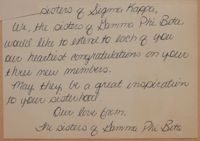 Sisters of Sigma Kappa,
We, the sisters of Gamma Phi Beta,
would like to extend to each of you
our heartiest congratulations on your
three new members.
May they be a great inspiration
to your sisterhood.
Our love from,
The sisters of Gamma Phi Beta